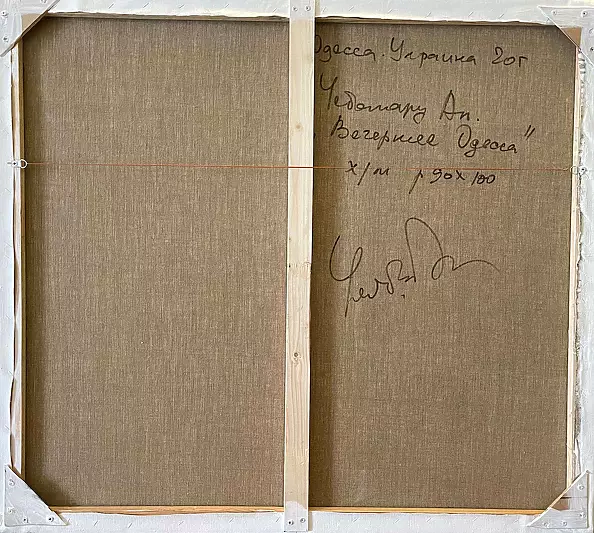 Одесса. Украина 20г
Чеботару Ан.
„Вечернее Одесса"
х/м р 90х100